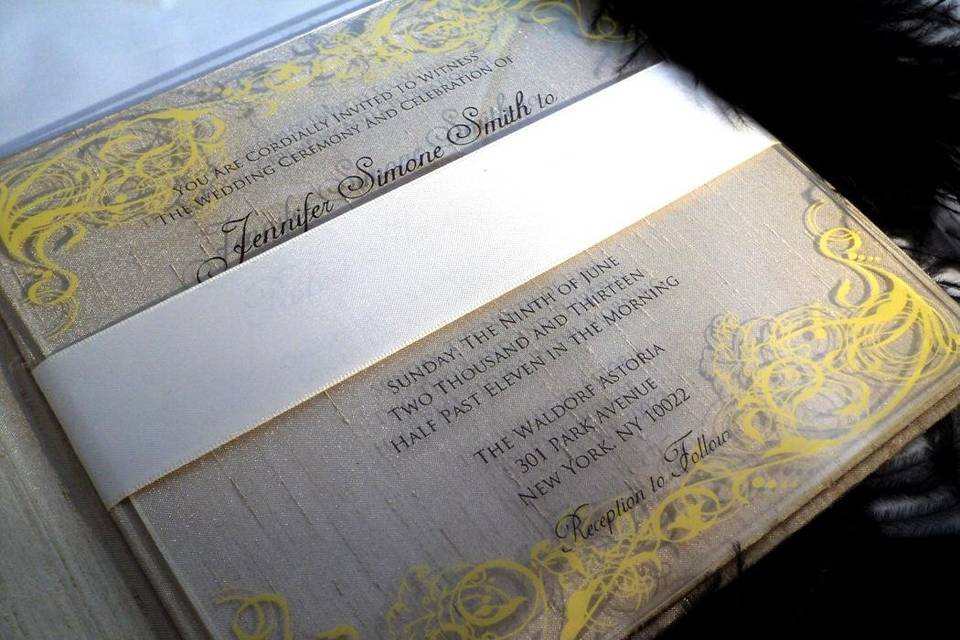 You Are Cordially Invited to Witness
The Wedding Ceremony and Celebration of
Jennifer Simone Smith to
Sunday, The Ninth of June
Two Thousand and Thirteen
Half Past Eleven in the Morning
The Waldorf Astoria
301 Park Avenue
New York, NY 10022
Reception to Follow